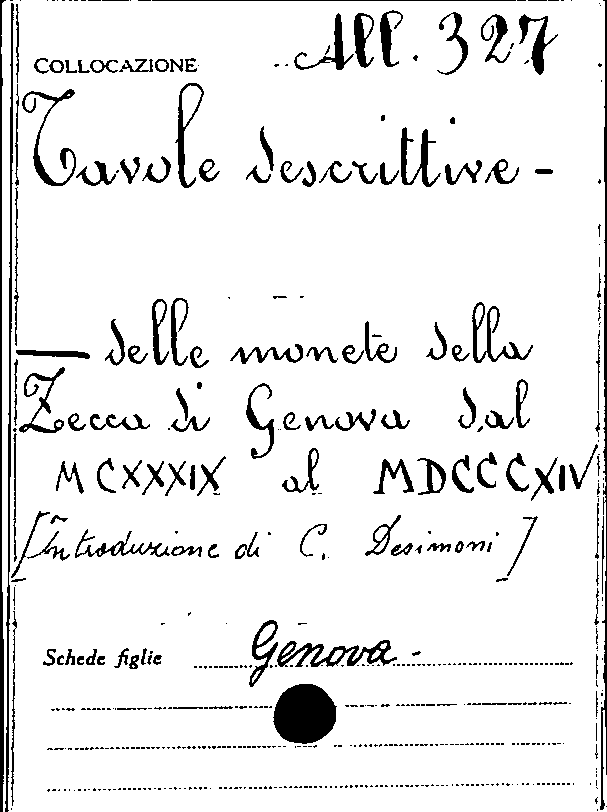 COLLOCAZIONE All. 327
Tavole descrittive -
— delle monete della
Zecca di Genova dal
MCXXXIX al MDCCCXIV
[Introduzione di C. Desimoni]
Schede figlie Genova -